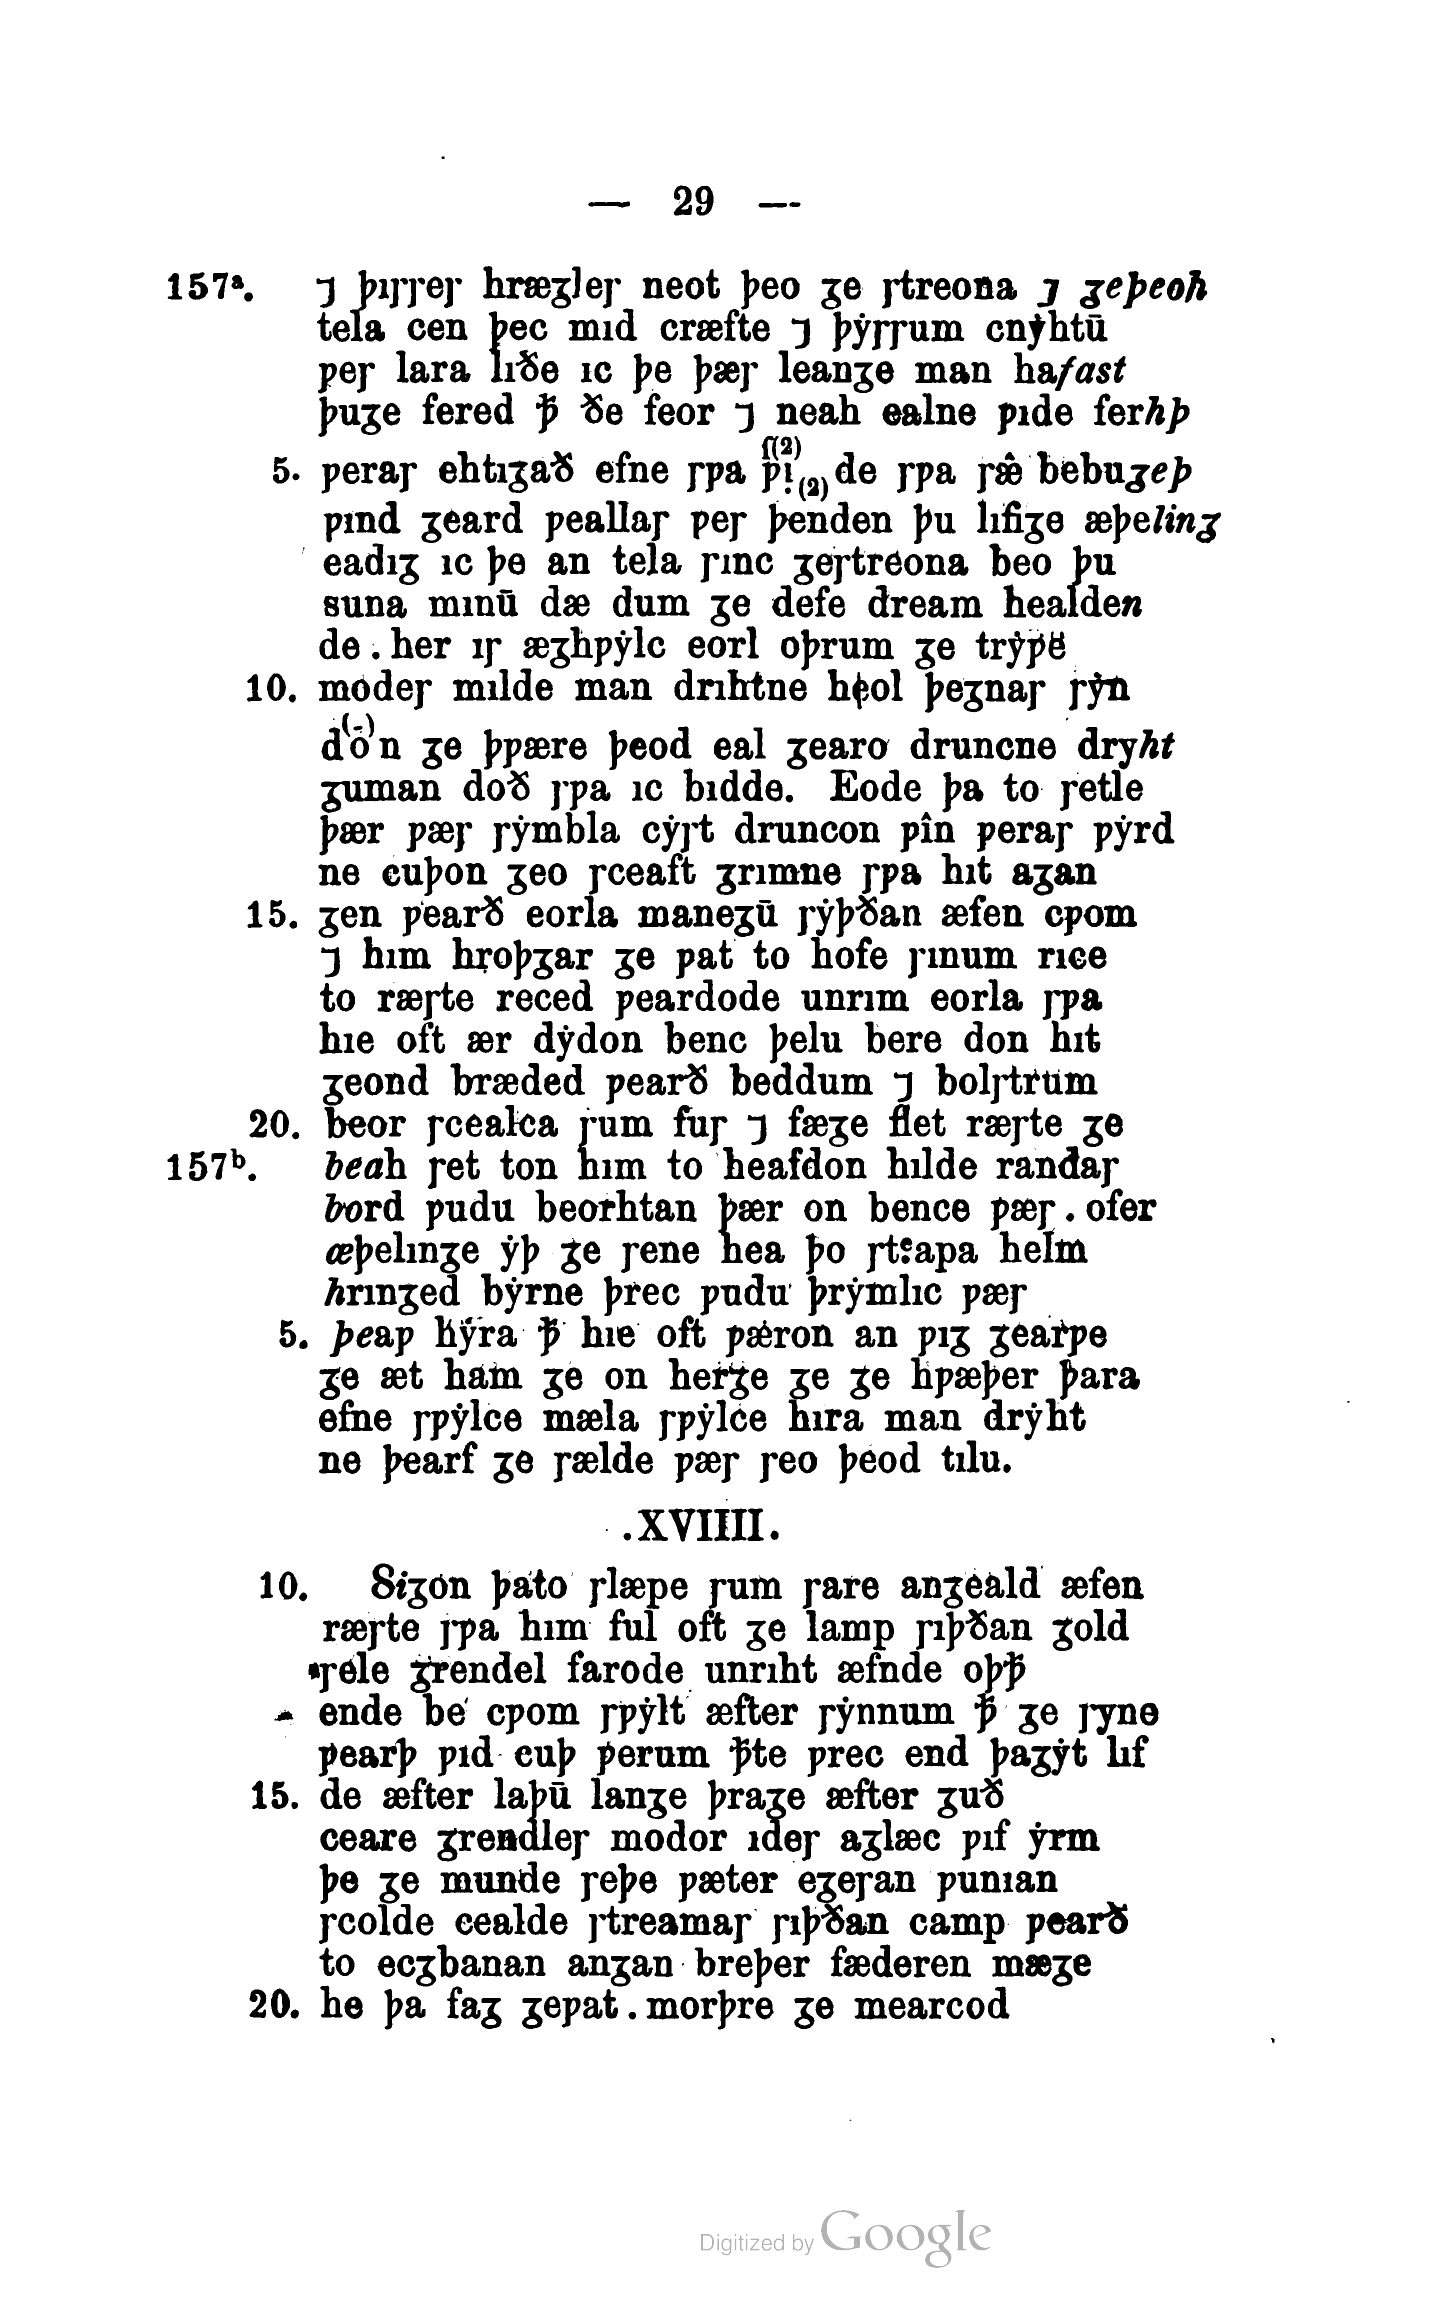 — 29 —
157ᵃ. ⁊ þıꞅꞅeꞅ hræʒleꞅ neot þeo ʒe ꞅtreona ⁊ ʒeþeoh
tela cen þec mıd cræfte ⁊ þẏꞅꞅum cnẏhtū
ƿeꞅ lara lıðe ıc þe þæꞅ leanʒe man hafast
þuʒe fered ꝥ ðe feor ⁊ neah ealne ƿıde ferhþ
5. ƿeraꞅ ehtıʒað efne ꞅƿa ƿı̣ ſ(2) (2) de ꞅƿa ꞅæ̂ bebuʒeþ
ƿınd ʒeard ƿeallaꞅ ƿeꞅ þenden þu lıfiʒe æþelinʒ
eadıʒ ıc þe an tela ꞅınc ʒeꞅtreona beo þu
suna mınū dæ dum ʒe defe dream healden
de . her ıꞅ æʒhƿẏlc eorl oþrum ʒe trẏƿe
10. modeꞅ mılde man drıhtne hẹol þeʒnaꞅ ꞅẏn
d(-)on ʒe þƿære þeod eal ʒearo druncne dryht
ʒuman doð ꞅƿa ıc bıdde. Eode þa to ꞅetle
þær ƿæꞅ ꞅẏmbla cẏꞅt druncon ƿîn ƿeraꞅ ƿẏrd
ne cuþon ʒeo ꞅceaft ʒrımne ꞅƿa hıt aʒan
15. ʒen ƿearð eorla maneʒū ꞅẏþðan æfen cƿom
⁊ hım hṛoþʒar ʒe ƿat to hofe ꞅınum rıce
to ræꞅte reced ƿeardode unrım eorla ꞅƿa
hıe oft ær dẏdon benc þelu bere don hıt
ʒeond bræded ƿearð beddum ⁊ bolꞅtrum
20. beor ꞅcealca ꞅum fuꞅ ⁊ fæʒe flet ræꞅte ʒe
157ᵇ. beah ꞅet ton hım to heafdon hılde randaꞅ
bord ƿudu beorhtan þær on bence ƿæꞅ . ofer
æþelınʒe ẏþ ʒe ꞅene hea þo ꞅteapa helm
hrınʒed bẏrne þrec ƿudu þrẏmlıc ƿæꞅ
5. þeaƿ hẏra ꝥ hıe oft ƿæron an ƿıʒ ʒearƿe
ʒe æt ham ʒe on herʒe ʒe ʒe hƿæþer þara
efne ꞅƿẏlce mæla ꞅƿẏlce hıra man drẏht
ne þearf ʒe ꞅælde ƿæꞅ ꞅeo þeod tılu.
.XVIIII.
10. Siʒon þato ꞅlæpe ꞅum ꞅare anʒeald æfen
ræꞅte ꞅƿa hım ful oft ʒe lamp ꞅıþðan ʒold
ꞅele ʒrendel farode unrıht æfnde oþꝥ
ende be cƿom ꞅƿẏlt æfter ꞅẏnnum ꝥ ʒe ꞅyne
ƿearþ ƿıd cuþ ƿerum ꝥte ƿrec end þaʒẏt lıf
15. de æfter laþū lanʒe þraʒe æfter ʒuð
ceare ʒrendleꞅ modor ıdeꞅ aʒlæc ƿıf ẏrm
þe ʒe munde ꞅeþe ƿæter eʒeꞅan ƿunıan
ꞅcolde cealde ꞅtreamaꞅ ꞅıþðan camp ƿearð
to ecʒbanan anʒan breþer fæderen mæʒe
20. he þa faʒ ʒeƿat . morþre ʒe mearcod
Digitized by Google